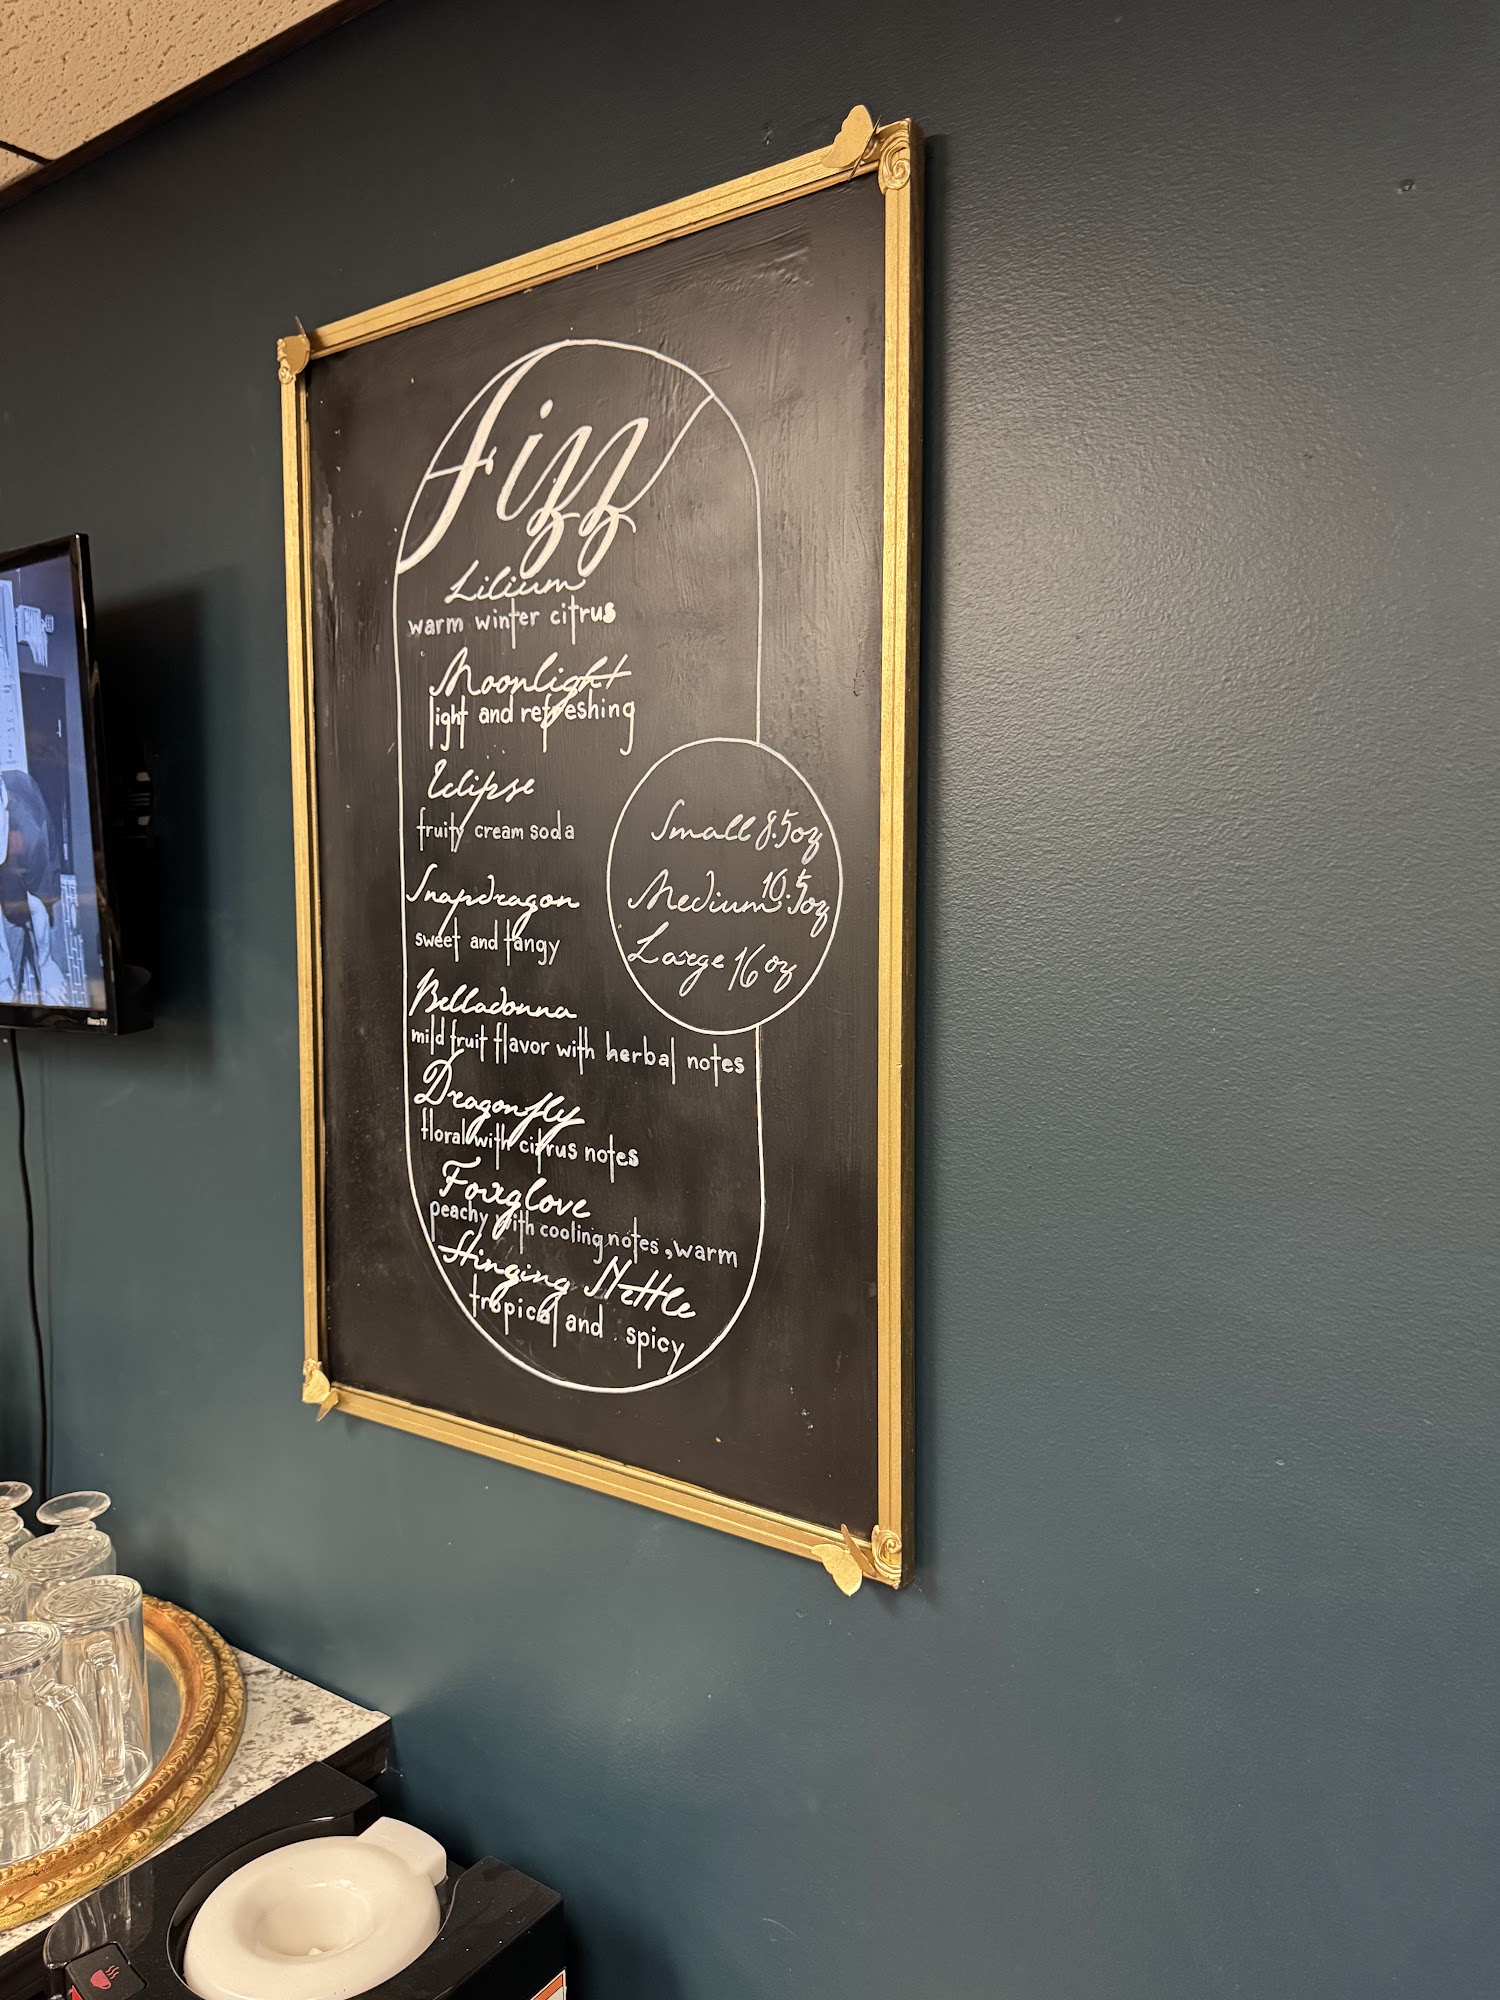 Fizz
Lilium
warm winter citrus
Moonlight
light and refreshing
Eclipse
fruity cream soda
Snapdragon
sweet and tangy
Belladonna
mild fruit flavor with herbal notes
Dragonfly
floral with citrus notes
Foxglove
peachy with cooling notes, warm
Stinging Nettle
tropical and spicy
Small 8.5oz
Medium 10.5oz
Large 16oz
Roku TV